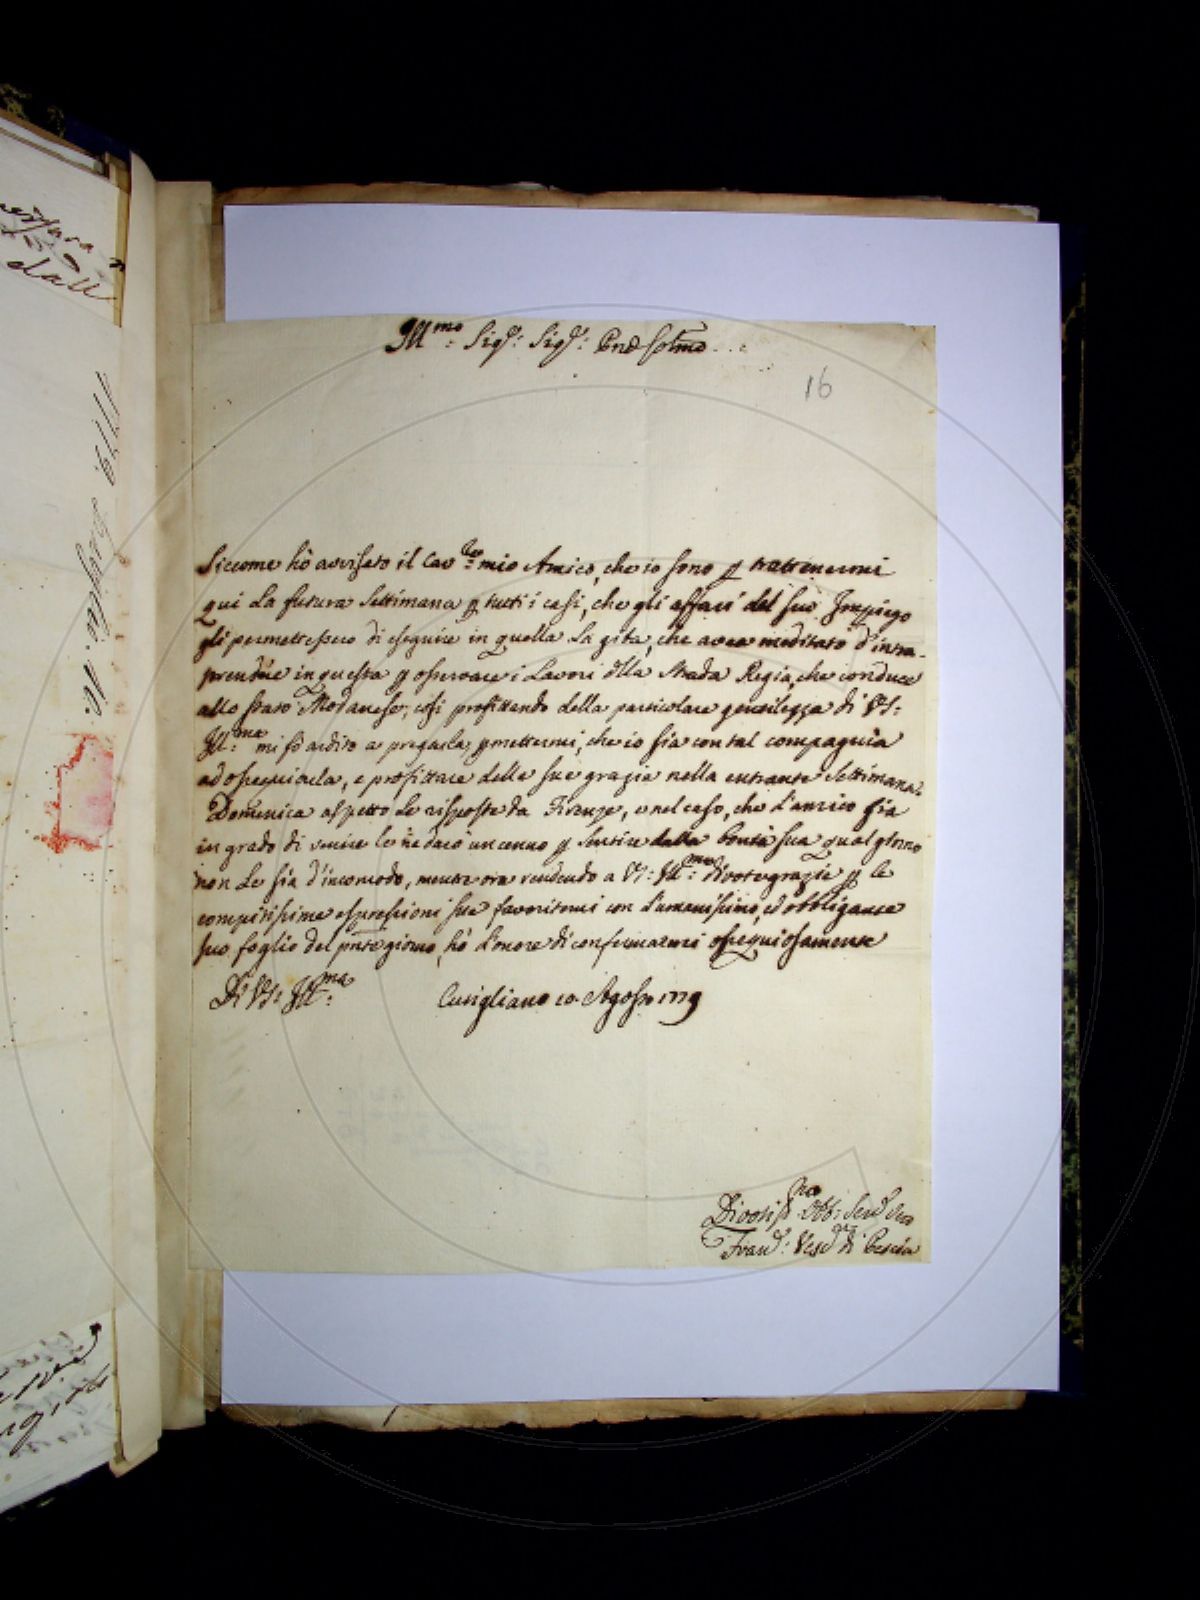 Ill:mo Sig.r: Sig.r: Pnē Colmo
16
Siccome hò avvisato il Cav:re mio Amico, che io sono p trattenermi
qui la futura Settimana p tutti i casi, che gli affari del suo Impiego
gli permettessero di eseguire in quella la gita, che avea meditato d'intra-
prendere in questa p osservare i Lavori dlla Strada Regia, che conduce
allo Stato Modanese; così profittando della particolare gentilezza di VS:
Ill:ma mi fò ardito a pregarla, pmettermi, che io sia con tal compagnia
ad ossequiarla, e profittare delle sue grazie nella entrante Settimana:
Domenica aspetto le risposte da Firenze, e nel caso, che l'amico sia
in grado di venire le ne darò un cenno p sentire dalla bontà sua qual giorno
non Le sia d'incomodo, mentre ora rendendo a VS: Ill:ma divote grazie p le
compitissime espressioni sue favoritemi con l'umanissimo, ed obbligante
suo foglio del pñte giorno, hò l'onore di confermarmi ossequiosamente
Di VS: Ill:ma
Cutigliano 10 Agosto 1779
Divotiss:mo Obb: Serv
Fran.: Vesc. di Pescia